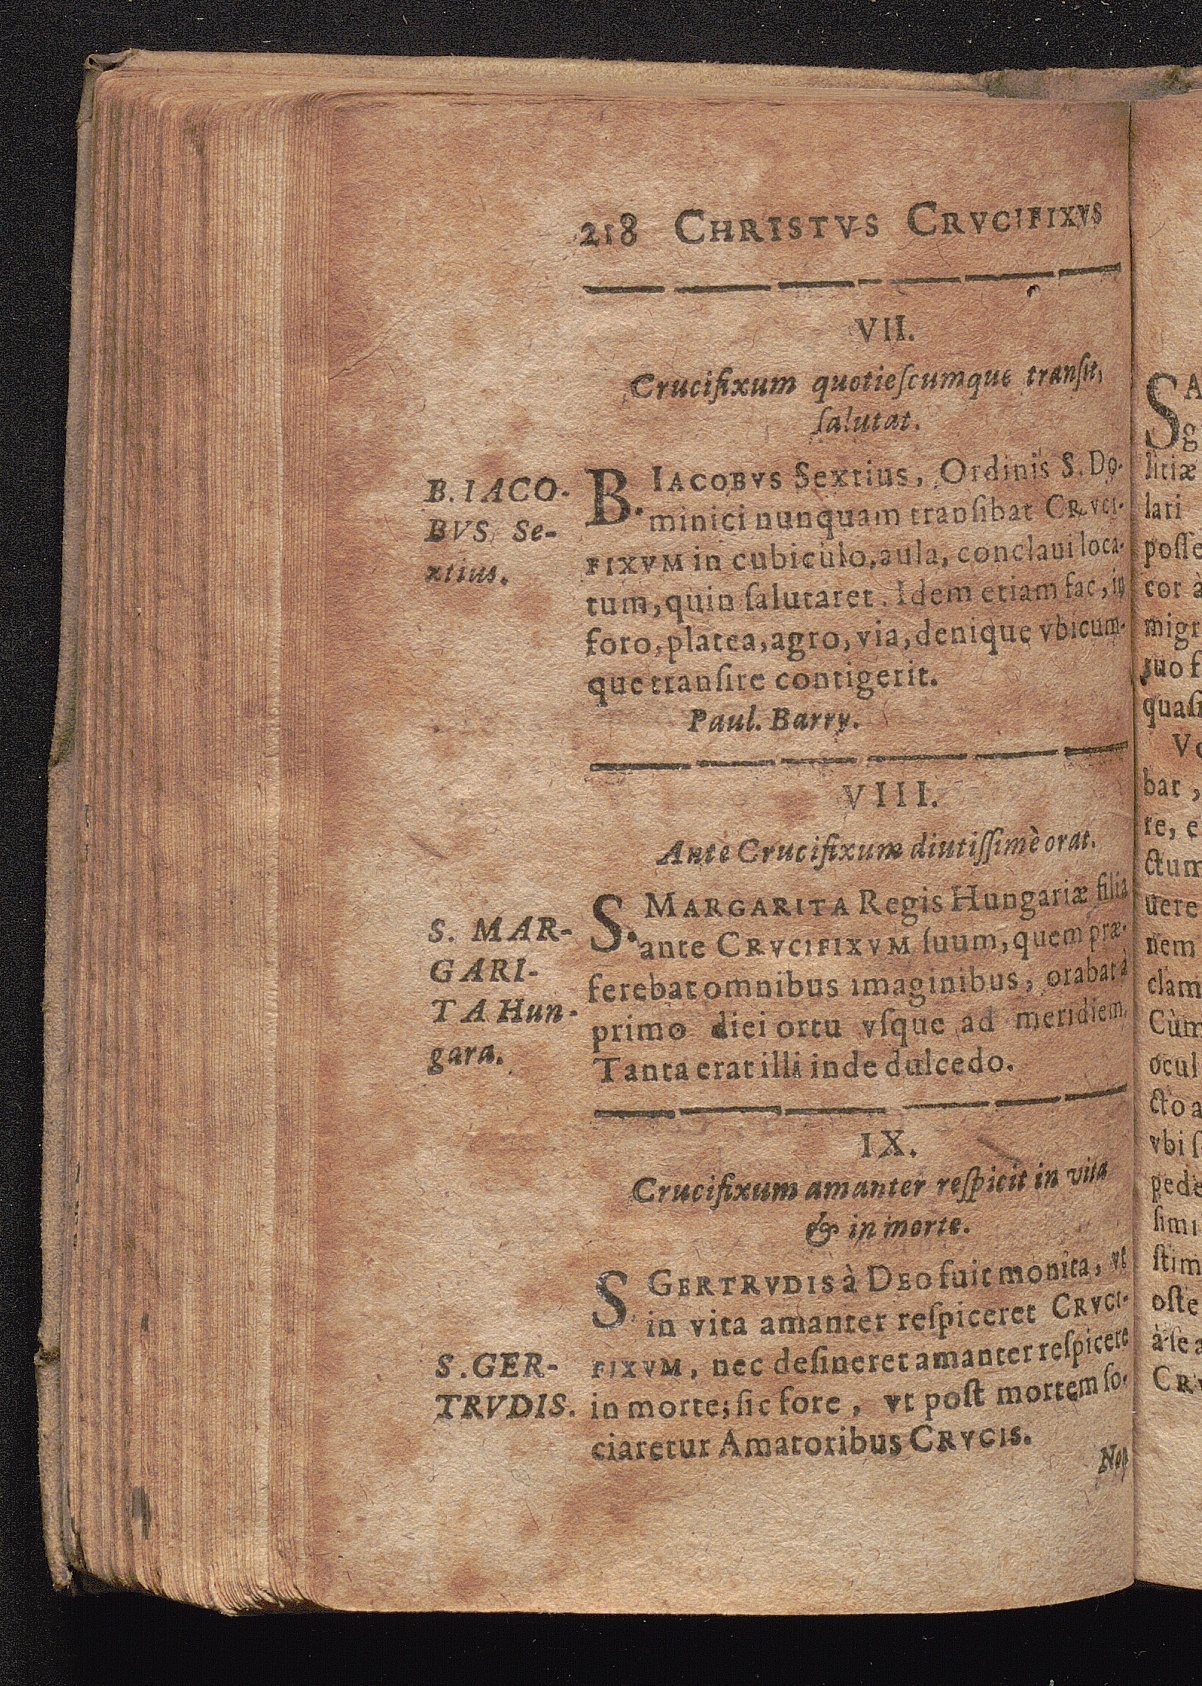 218 CHRISTVS CRVCIFIXVS
VII.
Crucifixum quotieſcumque tranſit,
ſalutat.
B. IACO-
BVS Se-
xtius.
B. IACOBVS Sextius, Ordinis S. Do-
minici nunquam tranſibat CRVCI-
FIXVM in cubiculo, aula, conclaui loca-
tum, quin ſalutaret. Idem etiam fac, in
foro, platea, agro, via, denique vbicum-
que tranſire contigerit.
Paul. Barry.
VIII.
Ante Crucifixum diutiſſimè orat.
S. MAR-
GARI-
TA Hun-
gara.
S. MARGARITA Regis Hungariæ filia
ante CRVCIFIXVM ſuum, quem præ-
ferebat omnibus imaginibus, orabat à
primo diei ortu vſque ad meridiem.
Tanta erat illi inde dulcedo.
IX.
Crucifixum amanter reſpicit in vita
& in morte.
S. GER-
TRVDIS.
S GERTRVDIS à DEO fuit monita, vt
in vita amanter reſpiceret CRVCI-
FIXVM, nec deſineret amanter reſpicere
in morte; ſic fore, vt poſt mortem ſo-
ciaretur Amatoribus CRVCIS.
SA
g
litiæ
lari
poſſe
cor à
migr
ſuo f
quaſi
Ve
bat,
re, e
ctum
uere
nem
clam
Cùm
ocul
cto a
vbi ſ
pede
ſimi
ſtim
oſte
à ſe a
CRV